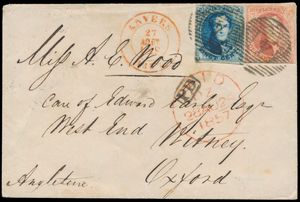 ANVERS
27
Miss A. E. Wood
PD
Care of Edward Early Esqr
1857
West End Witney
Oxford
Angleterre